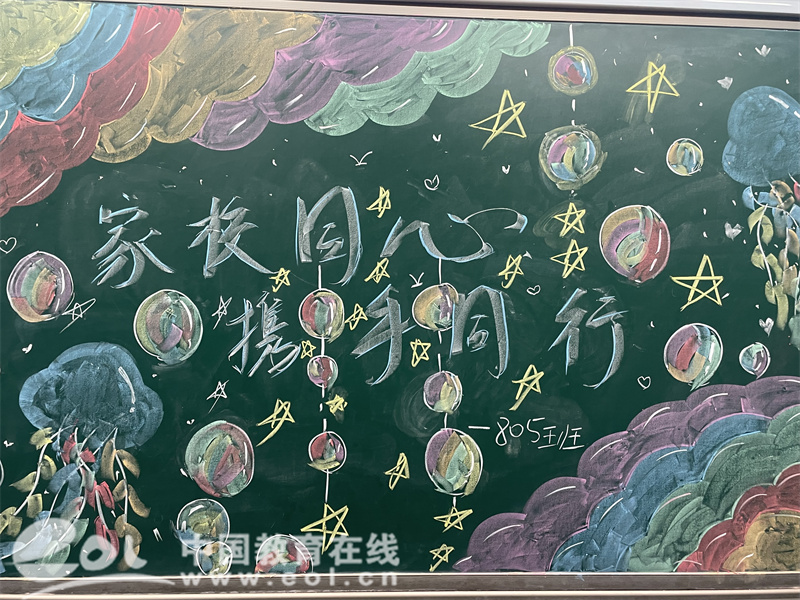 家校同心
携手同行
—805班
eol 中国教育在线
www.eol.cn